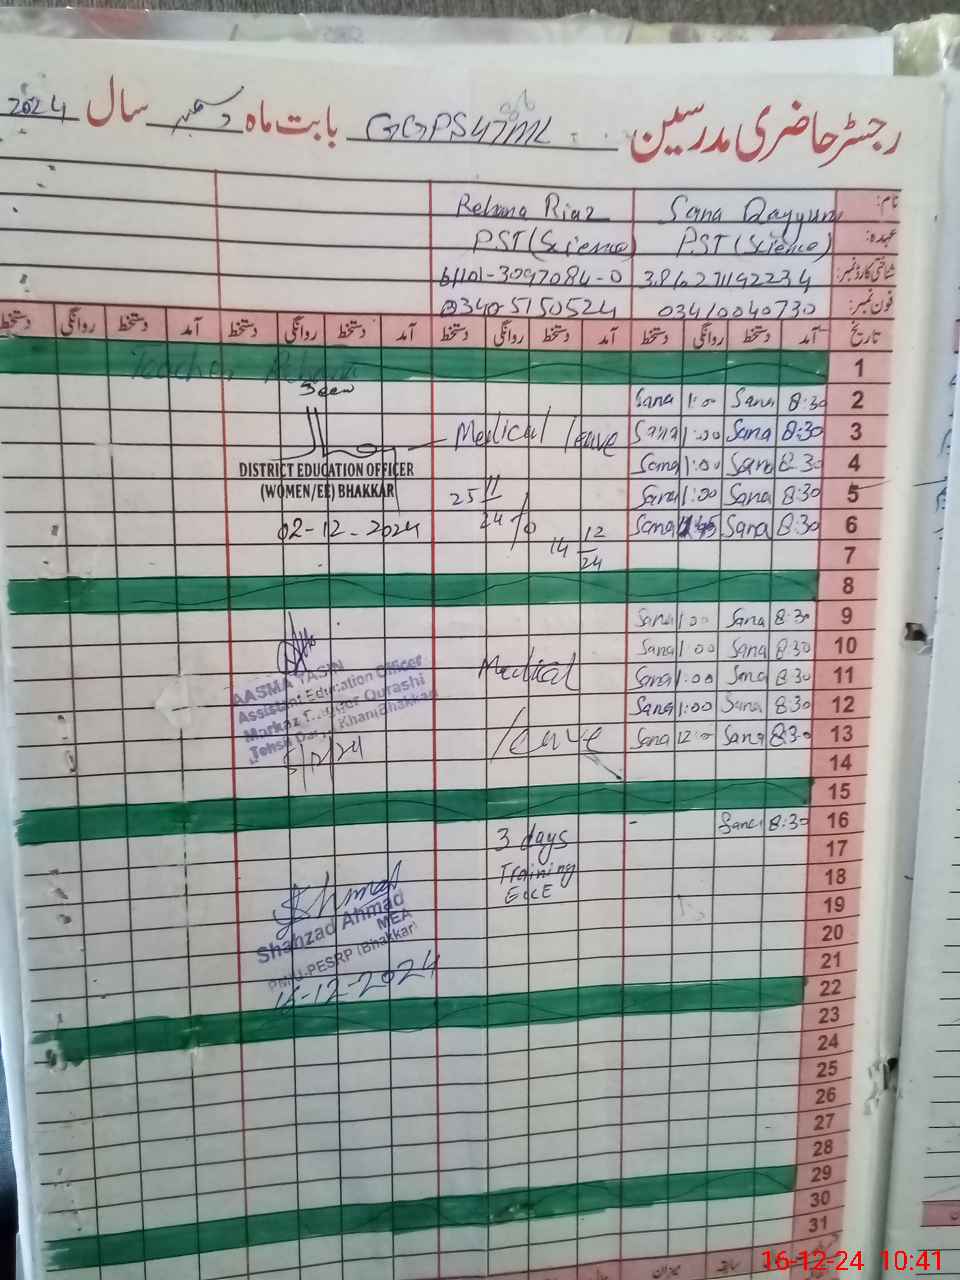 رجسٹر حاضری مدرسین GGPS 47ML بابت ماہ دسمبر سال 2024
نام: Sana Qayyum Rehma Riaz
عہدہ: PST (Science) PST (Science)
شناختی کارڈ نمبر: 38162711192234 61101-3097084-0
فون نمبر: 03410040730 0340-5150524
تاریخ آمد دستخط روانگی دستخط آمد دستخط روانگی دستخط آمد دستخط روانگی دستخط آمد دستخط روانگی دستخط
1 Teacher
Seen
2 8:30 Sana 1:00 Sana
3 8:30 Sana 1:00 Sana Medical leave
4 8:30 Sana 1:00 Sana
DISTRICT EDUCATION OFFICER
(WOMEN/EE) BHAKKAR
5 8:30 Sana 1:00 Sana 25 11/24 to
6 8:30 Sana Sana 02-12-2024
14 12/24
7
8
9 8:30 Sana 1:00 Sana
10 8:30 Sana 1:00 Sana
11 8:30 Sana 1:00 Sana Medical
12 8:30 Sana 1:00 Sana
13 8:30 Sana 12:0 Sana leave
AASMA YASIN
Assistant Education Officer
Markaz Qurashi
Tehsil Darya Khan Bhakkar
14
15
16 8:30 Sana - 3 days
17
18 Training
ECCE
19
Shahzad Ahmad
MEA
20
PMIU-PESRP (Bhakkar)
21
16-12-2024
22
23
24
25
26
27
28
29
30
31
میزان سابقہ
16-12-24 10:41